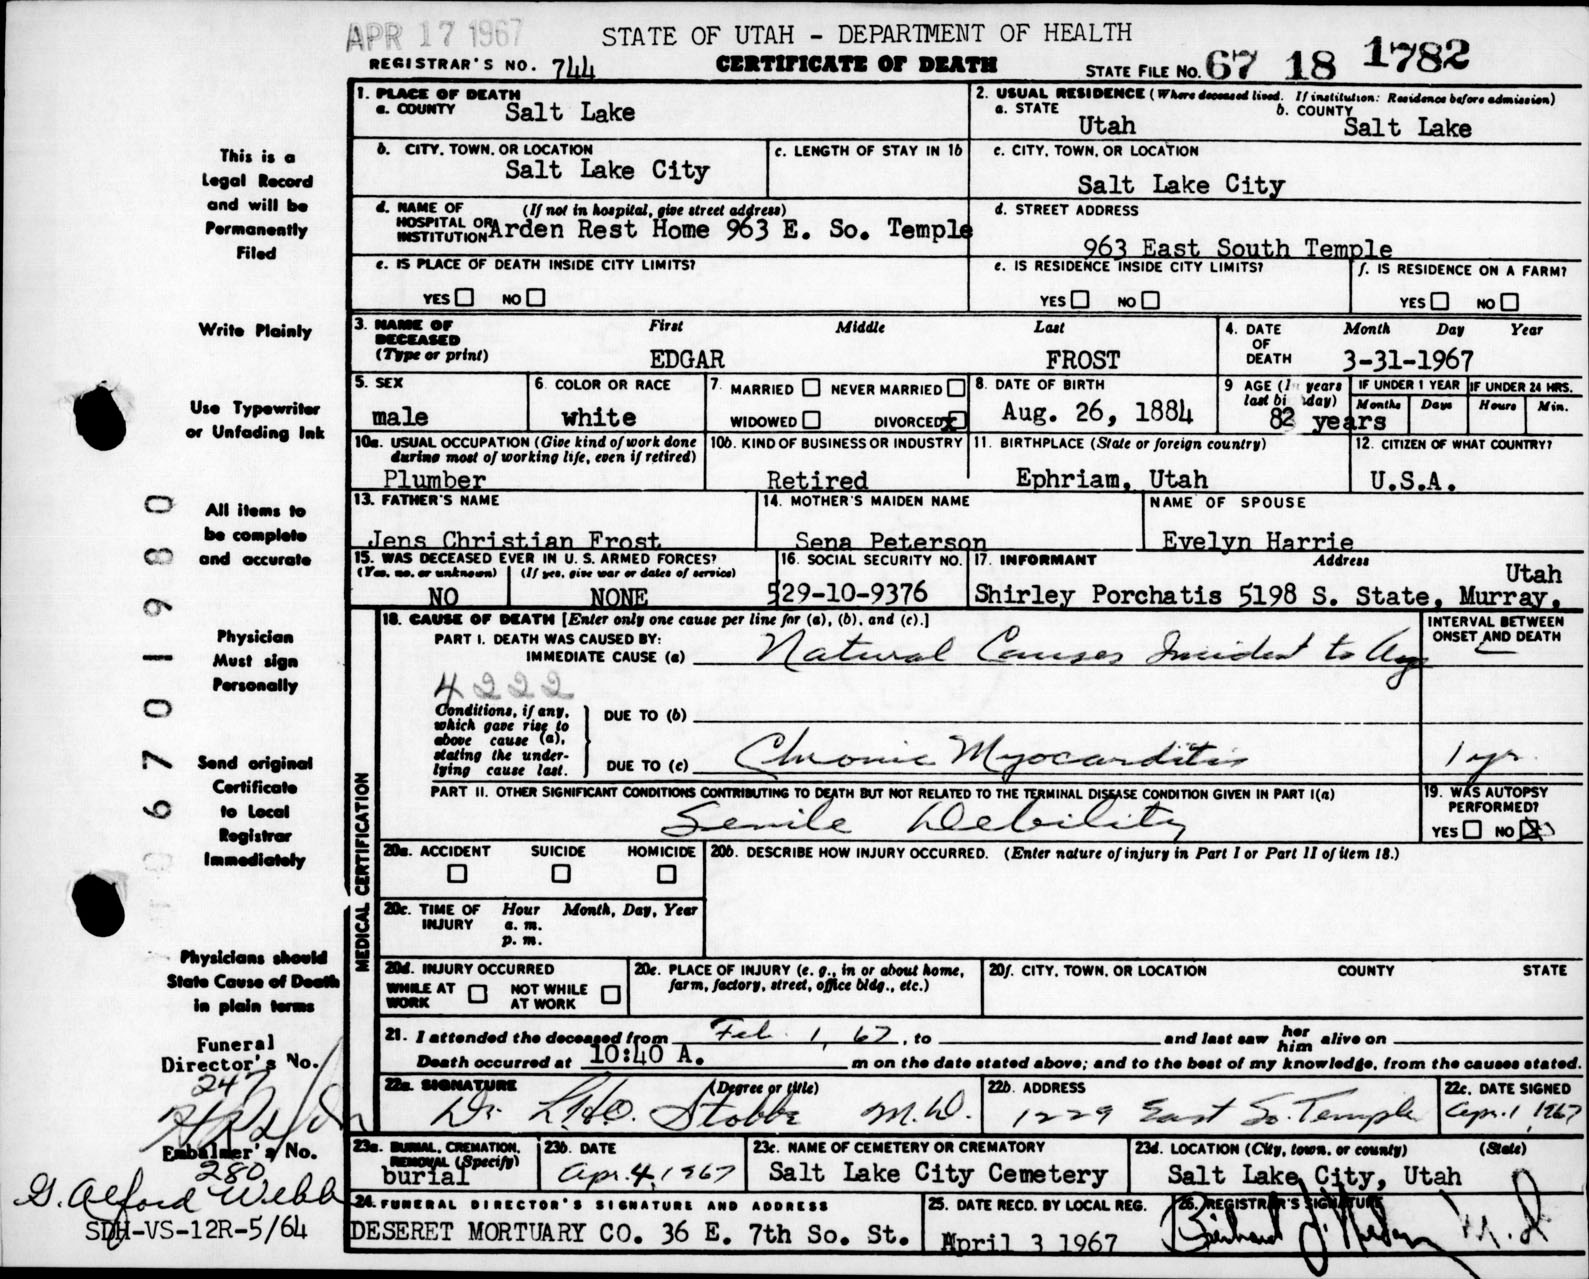 APR 17 1967
STATE OF UTAH - DEPARTMENT OF HEALTH
REGISTRAR'S NO. 744
CERTIFICATE OF DEATH
STATE FILE NO. 67 18 1782
This is a
Legal Record
and will be
Permanently
Filed
Write Plainly
Use Typewriter
or Unfading Ink
All items to
be complete
and accurate
Physician
Must sign
Personally
Send original
Certificate
to Local
Registrar
Immediately
Physicians should
State Cause of Death
in plain terms
6701980
1. PLACE OF DEATH
a. COUNTY Salt Lake
2. USUAL RESIDENCE (Where deceased lived. If institution: Residence before admission)
a. STATE Utah
b. COUNTY Salt Lake
b. CITY, TOWN, OR LOCATION
Salt Lake City
c. LENGTH OF STAY IN 1b
c. CITY, TOWN, OR LOCATION
Salt Lake City
d. NAME OF HOSPITAL OR INSTITUTION (If not in hospital, give street address)
Arden Rest Home 963 E. So. Temple
d. STREET ADDRESS
963 East South Temple
e. IS PLACE OF DEATH INSIDE CITY LIMITS?
YES NO
e. IS RESIDENCE INSIDE CITY LIMITS?
YES NO
f. IS RESIDENCE ON A FARM?
YES NO
3. NAME OF DECEASED (Type or print)
First Middle Last
EDGAR FROST
4. DATE OF DEATH
Month Day Year
3-31-1967
5. SEX
male
6. COLOR OR RACE
white
7. MARRIED NEVER MARRIED
WIDOWED DIVORCED x
8. DATE OF BIRTH
Aug. 26, 1884
9 AGE (I years
last bi day)
82 years
IF UNDER 1 YEAR
Months Days
IF UNDER 24 HRS.
Hours Min.
10a. USUAL OCCUPATION (Give kind of work done
during most of working life, even if retired)
Plumber
10b. KIND OF BUSINESS OR INDUSTRY
Retired
11. BIRTHPLACE (State or foreign country)
Ephriam, Utah
12. CITIZEN OF WHAT COUNTRY?
U.S.A.
13. FATHER'S NAME
Jens Christian Frost
14. MOTHER'S MAIDEN NAME
Sena Peterson
NAME OF SPOUSE
Evelyn Harrie
15. WAS DECEASED EVER IN U. S. ARMED FORCES?
(Yes, no, or unknown) (If yes, give war or dates of service)
NO NONE
16. SOCIAL SECURITY NO.
529-10-9376
17. INFORMANT Address
Utah
Shirley Porchatis 5198 S. State, Murray,
MEDICAL CERTIFICATION
18. CAUSE OF DEATH [Enter only one cause per line for (a), (b), and (c).]
INTERVAL BETWEEN
ONSET AND DEATH
PART I. DEATH WAS CAUSED BY:
IMMEDIATE CAUSE (a) Natural Causes Incident to Age
4222
Conditions, if any,
which gave rise to
above cause (a),
stating the under-
lying cause last.
DUE TO (b)
DUE TO (c) Chronic Myocarditis 1 yr.
PART II. OTHER SIGNIFICANT CONDITIONS CONTRIBUTING TO DEATH BUT NOT RELATED TO THE TERMINAL DISEASE CONDITION GIVEN IN PART I(a)
Senile Debility
19. WAS AUTOPSY
PERFORMED?
YES NO X
20a. ACCIDENT SUICIDE HOMICIDE
20b. DESCRIBE HOW INJURY OCCURRED. (Enter nature of injury in Part I or Part II of item 18.)
20c. TIME OF INJURY
Hour Month, Day, Year
a. m.
p. m.
20d. INJURY OCCURRED
WHILE AT WORK NOT WHILE AT WORK
20e. PLACE OF INJURY (e. g., in or about home,
farm, factory, street, office bldg., etc.)
20f. CITY, TOWN, OR LOCATION COUNTY STATE
21. I attended the deceased from Feb. 1, 67, to and last saw her him alive on
Death occurred at 10:40 A. m on the date stated above; and to the best of my knowledge, from the causes stated.
22a. SIGNATURE (Degree or title)
Dr. Stobbe M.D.
22b. ADDRESS
1229 East So. Temple
22c. DATE SIGNED
Apr. 1 1967
23a. BURIAL, CREMATION,
REMOVAL (Specify)
burial
23b. DATE
Apr. 4, 1967
23c. NAME OF CEMETERY OR CREMATORY
Salt Lake City Cemetery
23d. LOCATION (City, town, or county) (State)
Salt Lake City, Utah
24. FUNERAL DIRECTOR'S SIGNATURE AND ADDRESS
DESERET MORTUARY CO. 36 E. 7th So. St.
25. DATE RECD. BY LOCAL REG.
April 3 1967
26. REGISTRAR'S SIGNATURE
M.D
Funeral
Director's No.
247
Embalmer's No.
280
G. Alford Webb
SDH-VS-12R-5/64